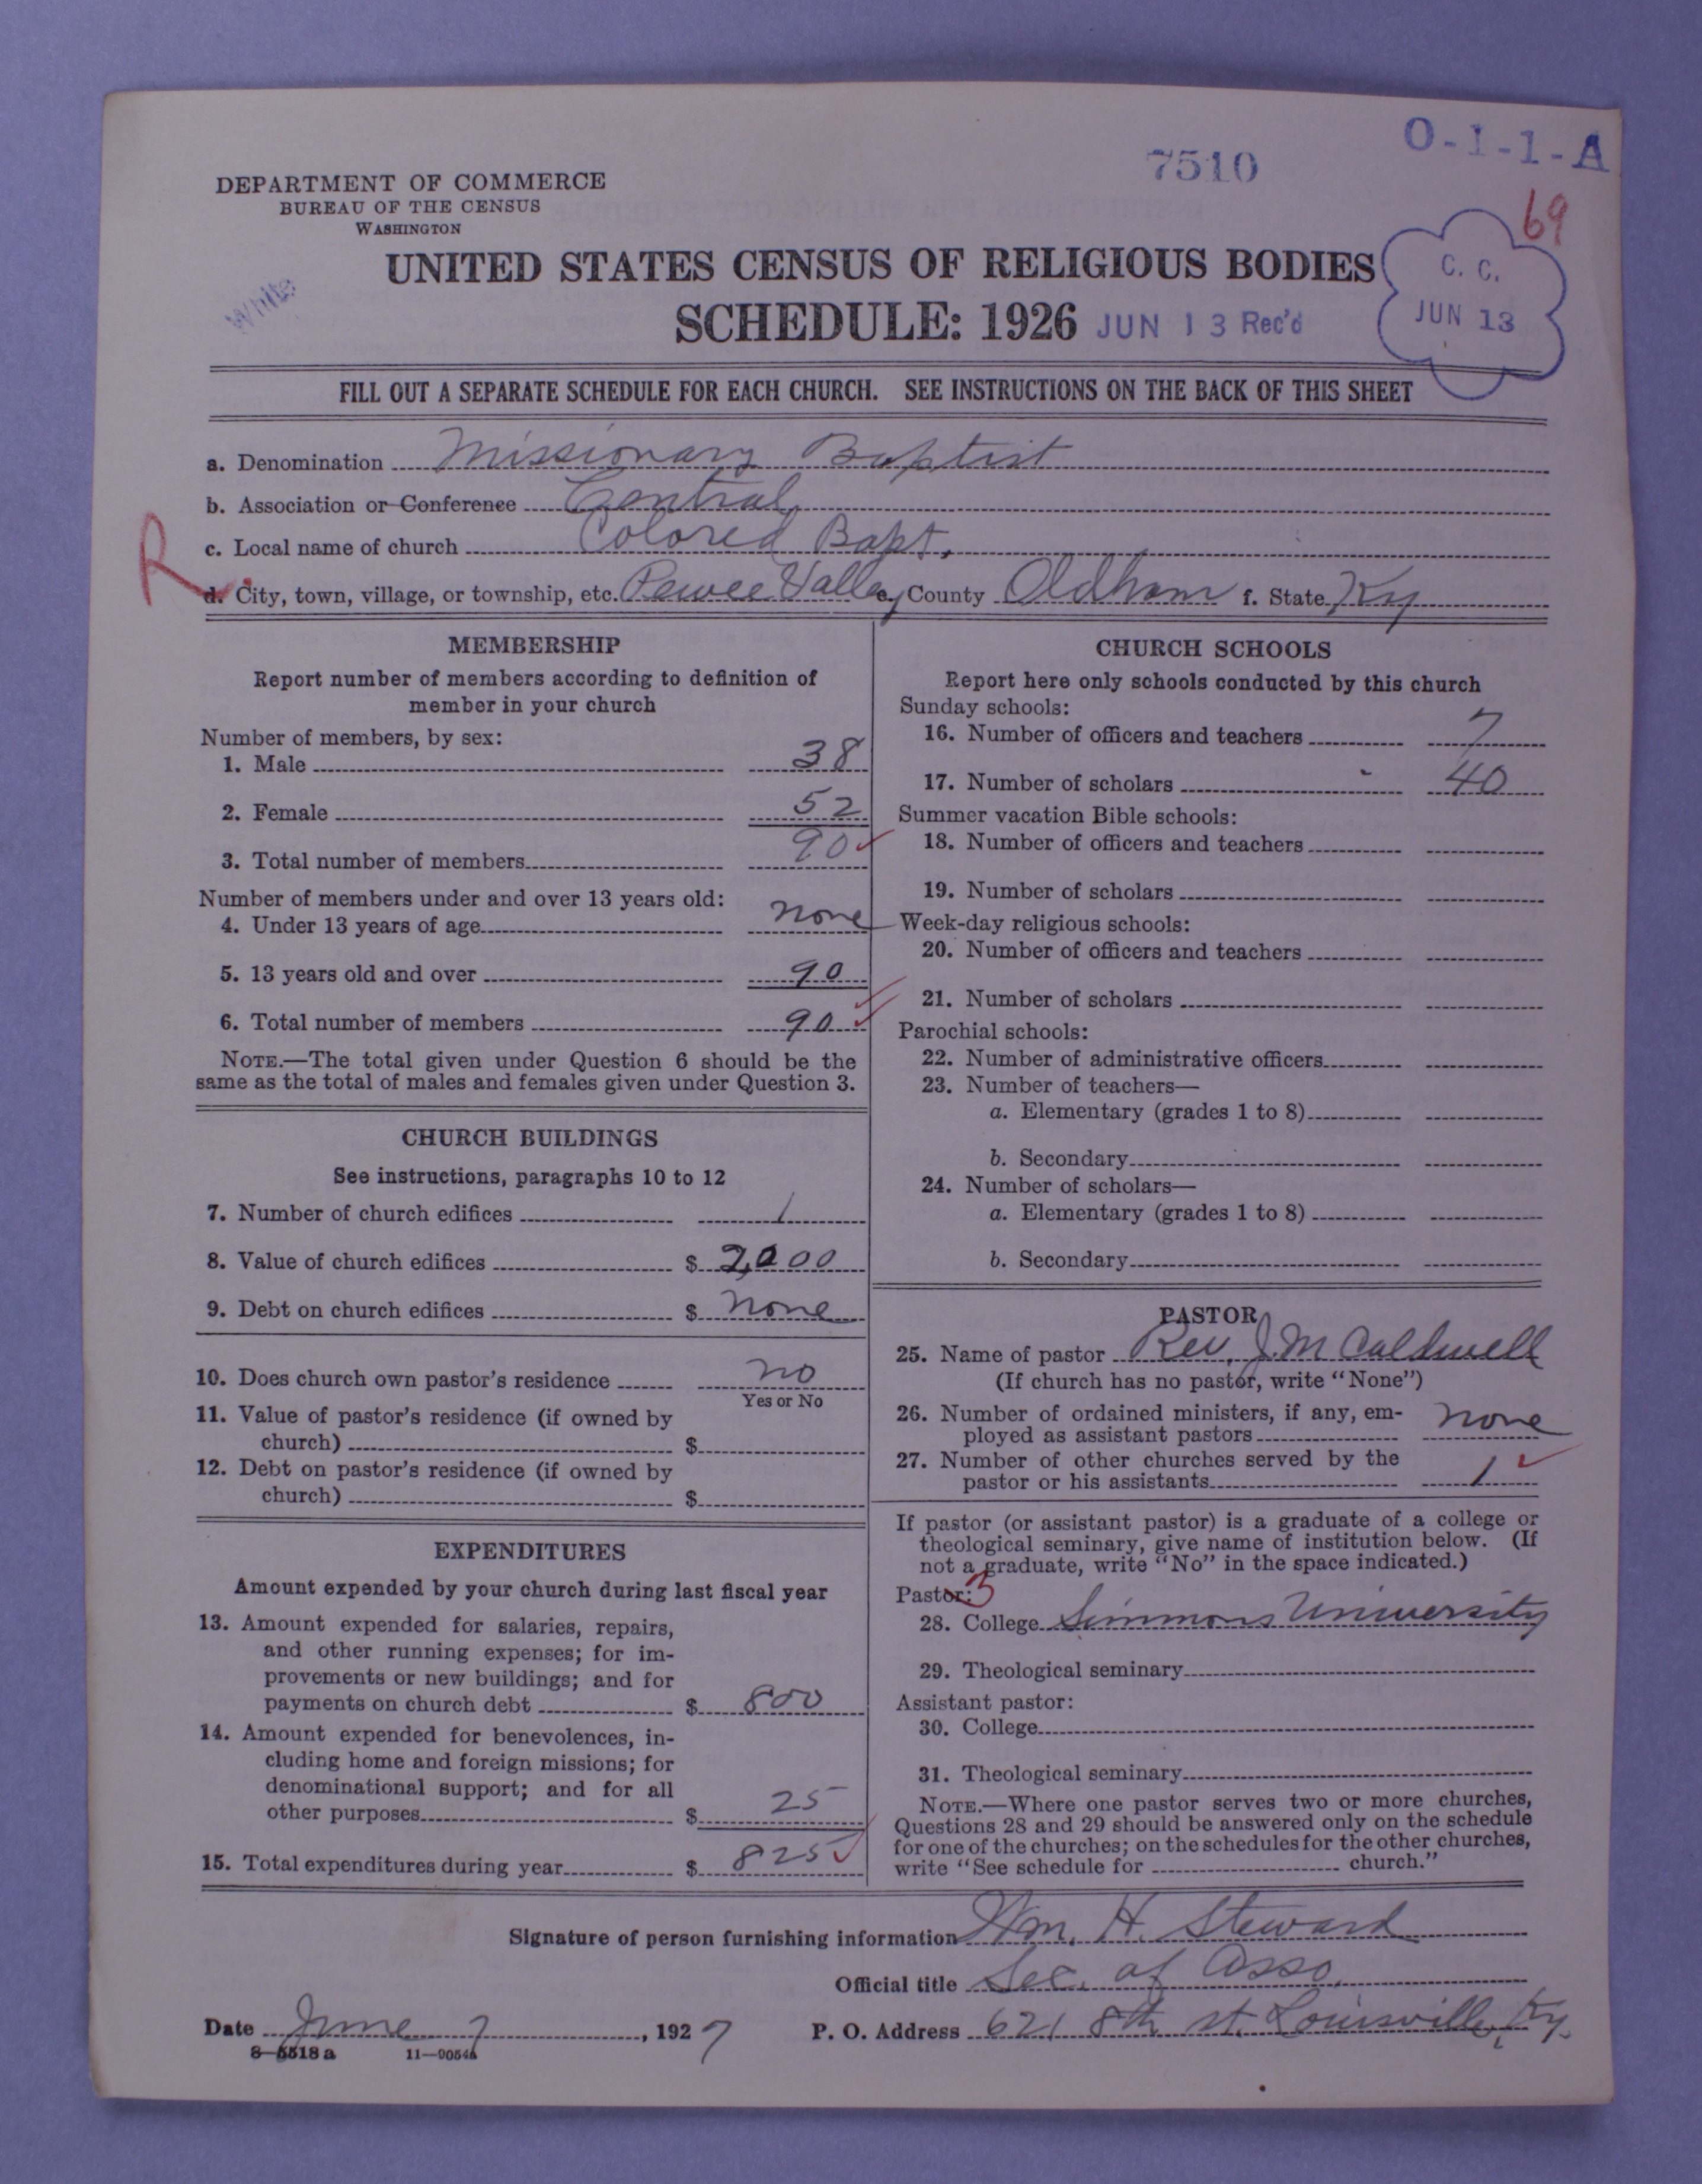 7510
O-1-1-A
69
DEPARTMENT OF COMMERCE
BUREAU OF THE CENSUS
WASHINGTON
White
UNITED STATES CENSUS OF RELIGIOUS BODIES
SCHEDULE: 1926
JUN 13 Rec'd
C. C.
JUN 13
FILL OUT A SEPARATE SCHEDULE FOR EACH CHURCH. SEE INSTRUCTIONS ON THE BACK OF THIS SHEET
a. Denomination Missionary Baptist
b. Association or Conference Central
c. Local name of church Colored Bapt.
R.
d. City, town, village, or township, etc. Pewee Valley e. County Oldham f. State Ky
MEMBERSHIP
Report number of members according to definition of
member in your church
Number of members, by sex:
1. Male 38
2. Female 52
3. Total number of members 90
Number of members under and over 13 years old:
4. Under 13 years of age none
5. 13 years old and over 90
6. Total number of members 90
NOTE.—The total given under Question 6 should be the
same as the total of males and females given under Question 3.
CHURCH BUILDINGS
See instructions, paragraphs 10 to 12
7. Number of church edifices 1
8. Value of church edifices $ 2,000
9. Debt on church edifices $ none
10. Does church own pastor's residence no
Yes or No
11. Value of pastor's residence (if owned by
church) $
12. Debt on pastor's residence (if owned by
church) $
EXPENDITURES
Amount expended by your church during last fiscal year
13. Amount expended for salaries, repairs,
and other running expenses; for im-
provements or new buildings; and for
payments on church debt $ 800
14. Amount expended for benevolences, in-
cluding home and foreign missions; for
denominational support; and for all
other purposes $ 25
15. Total expenditures during year $ 825
CHURCH SCHOOLS
Report here only schools conducted by this church
Sunday schools:
16. Number of officers and teachers 7
17. Number of scholars 40
Summer vacation Bible schools:
18. Number of officers and teachers
19. Number of scholars
Week-day religious schools:
20. Number of officers and teachers
21. Number of scholars
Parochial schools:
22. Number of administrative officers
23. Number of teachers—
a. Elementary (grades 1 to 8)
b. Secondary
24. Number of scholars—
a. Elementary (grades 1 to 8)
b. Secondary
PASTOR
25. Name of pastor Rev. J. M Caldwell
(If church has no pastor, write "None")
26. Number of ordained ministers, if any, em-
ployed as assistant pastors none
27. Number of other churches served by the
pastor or his assistants 1
If pastor (or assistant pastor) is a graduate of a college or
theological seminary, give name of institution below. (If
not a graduate, write "No" in the space indicated.)
Pastor: 3
28. College Simmons University
29. Theological seminary
Assistant pastor:
30. College
31. Theological seminary
NOTE.—Where one pastor serves two or more churches,
Questions 28 and 29 should be answered only on the schedule
for one of the churches; on the schedules for the other churches,
write "See schedule for church."
Signature of person furnishing information Wm. H. Steward
Official title Sec. of Asso.
Date June 7, 1927 P. O. Address 621 8th st. Louisville, Ky.
8-5518 a 11—9054a